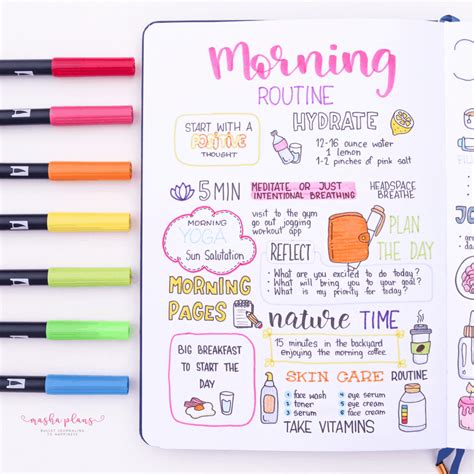 Morning
ROUTINE
START WITH A
POSITIVE
THOUGHT
HYDRATE
12-16 ounce water
1 lemon
1-2 pinches of pink salt
5 MIN
MEDITATE OR JUST
INTENTIONAL BREATHING
HEADSPACE
BREATHE
MORNING
YOGA
Sun Salutation
visit to the gym
go out jogging
workout app
PLAN
THE DAY
REFLECT
What are you excited to do today?
What will bring you to your goal?
What is my priority for today?
MORNING
PAGES
nature TIME
15 minutes in the backyard
enjoying the morning coffee
BIG BREAKFAST
TO START THE
DAY
SKIN CARE ROUTINE
1 face wash
2 toner
3 serum
4 eye serum
5 eye cream
6 face cream
TAKE VITAMINS
masha plans
BULLET JOURNALING
TO HAPPINESS